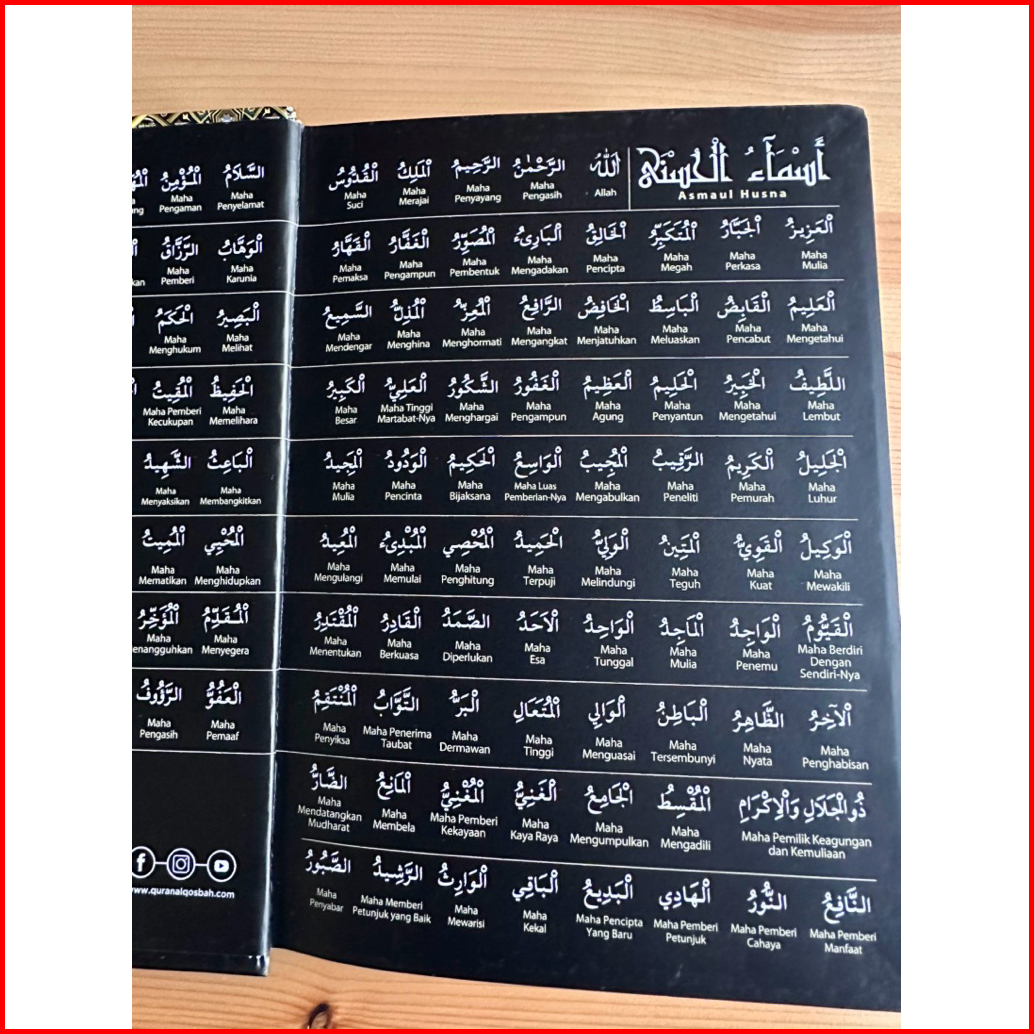 أَسْمَآءُ الْحُسْنٰى
Asmaul Husna
اللهُ
Allah
الرَّحْمٰنُ
Maha
Pengasih
الرَّحِيمُ
Maha
Penyayang
الْمَلِكُ
Maha
Merajai
الْقُدُّوسُ
Maha
Suci
السَّلَامُ
Maha
Penyelamat
الْمُؤْمِنُ
Maha
Pengaman
الْعَزِيزُ
Maha
Mulia
الْجَبَّارُ
Maha
Perkasa
الْمُتَكَبِّرُ
Maha
Megah
الْخَالِقُ
Maha
Pencipta
الْبَارِىءُ
Maha
Mengadakan
الْمُصَوِّرُ
Maha
Pembentuk
الْغَفَّارُ
Maha
Pengampun
الْقَهَّارُ
Maha
Pemaksa
الْوَهَّابُ
Maha
Karunia
الرَّزَّاقُ
Maha
Pemberi
الْعَلِيمُ
Maha
Mengetahui
الْقَابِضُ
Maha
Pencabut
الْبَاسِطُ
Maha
Meluaskan
الْخَافِضُ
Maha
Menjatuhkan
الرَّافِعُ
Maha
Mengangkat
الْمُعِزُّ
Maha
Menghormati
الْمُذِلُّ
Maha
Menghina
السَّمِيعُ
Maha
Mendengar
الْبَصِيرُ
Maha
Melihat
الْحَكَمُ
Maha
Menghukum
اللَّطِيفُ
Maha
Lembut
الْخَبِيرُ
Maha
Mengetahui
الْحَلِيمُ
Maha
Penyantun
الْعَظِيمُ
Maha
Agung
الْغَفُورُ
Maha
Pengampun
الشَّكُورُ
Maha
Menghargai
الْعَلِيُّ
Maha Tinggi
Martabat-Nya
الْكَبِيرُ
Maha
Besar
الْحَفِيظُ
Maha
Memelihara
الْمُقِيتُ
Maha Pemberi
Kecukupan
الْجَلِيلُ
Maha
Luhur
الْكَرِيمُ
Maha
Pemurah
الرَّقِيبُ
Maha
Peneliti
الْمُجِيبُ
Maha
Mengabulkan
الْوَاسِعُ
Maha Luas
Pemberian-Nya
الْحَكِيمُ
Maha
Bijaksana
الْوَدُودُ
Maha
Pencinta
الْمَجِيدُ
Maha
Mulia
الْبَاعِثُ
Maha
Membangkitkan
الشَّهِيدُ
Maha
Menyaksikan
الْوَكِيلُ
Maha
Mewakili
الْقَوِيُّ
Maha
Kuat
الْمَتِينُ
Maha
Teguh
الْوَلِيُّ
Maha
Melindungi
الْحَمِيدُ
Maha
Terpuji
الْمُحْصِي
Maha
Penghitung
الْمُبْدِىءُ
Maha
Memulai
الْمُعِيدُ
Maha
Mengulangi
الْمُحْيِي
Maha
Menghidupkan
الْمُمِيتُ
Maha
Mematikan
الْقَيُّومُ
Maha Berdiri
Dengan
Sendiri-Nya
الْوَاجِدُ
Maha
Penemu
الْمَاجِدُ
Maha
Mulia
الْوَاحِدُ
Maha
Tunggal
الْاَحَدُ
Maha
Esa
الصَّمَدُ
Maha
Diperlukan
الْقَادِرُ
Maha
Berkuasa
الْمُقْتَدِرُ
Maha
Menentukan
الْمُقَدِّمُ
Maha
Menyegera
الْمُؤَخِّرُ
Maha
الْاٰخِرُ
Maha
Penghabisan
الظَّاهِرُ
Maha
Nyata
الْبَاطِنُ
Maha
Tersembunyi
الْوَالِي
Maha
Menguasai
الْمُتَعَالِ
Maha
Tinggi
الْبَرُّ
Maha
Dermawan
التَّوَّابُ
Maha Penerima
Taubat
الْمُنْتَقِمُ
Maha
Penyiksa
الْعَفُوُّ
Maha
Pemaaf
الرَّؤُوفُ
Maha
Pengasih
ذُوالْجَلَالِ وَالْاِكْرَامِ
Maha Pemilik Keagungan
dan Kemuliaan
الْمُقْسِطُ
Maha
Mengadili
الْجَامِعُ
Maha
Mengumpulkan
الْغَنِيُّ
Maha
Kaya Raya
الْمُغْنِيُّ
Maha Pemberi
Kekayaan
الْمَانِعُ
Maha
Membela
الضَّارُّ
Maha
Mendatangkan
Mudharat
النَّافِعُ
Maha Pemberi
Manfaat
النُّورُ
Maha Pemberi
Cahaya
الْهَادِي
Maha Pemberi
Petunjuk
الْبَدِيعُ
Maha Pencipta
Yang Baru
الْبَاقِي
Maha
Kekal
الْوَارِثُ
Maha
Mewarisi
الرَّشِيدُ
Maha Memberi
Petunjuk yang Baik
الصَّبُورُ
Maha
Penyabar
www.quranalqosbah.com